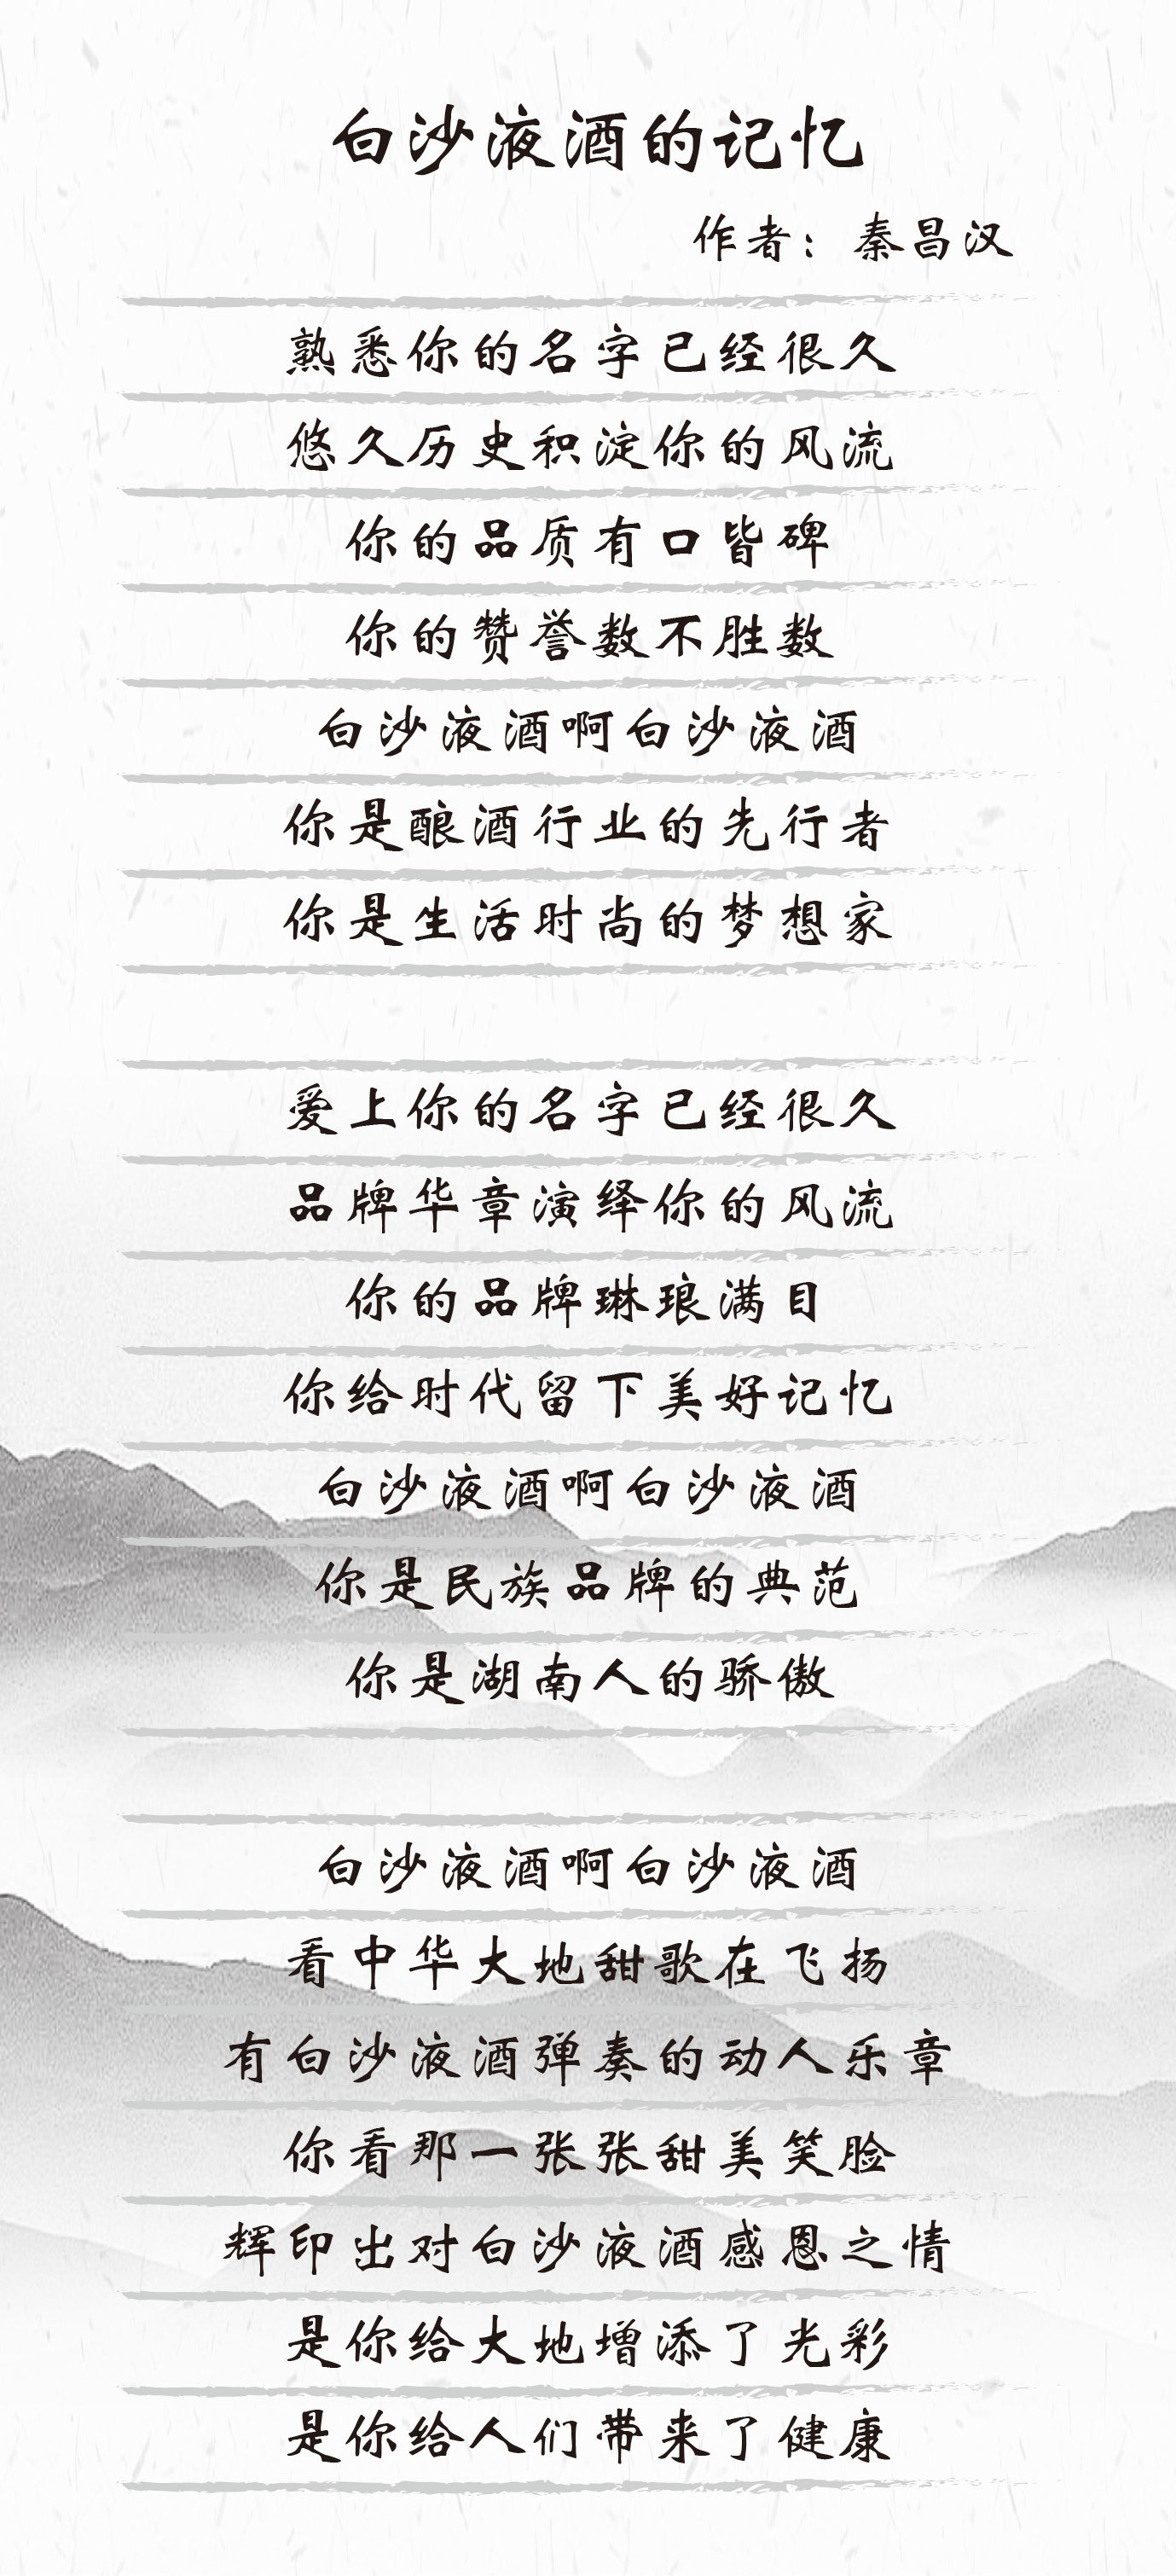 白沙液酒的记忆
作者：秦昌汉
熟悉你的名字已经很久
悠久历史积淀你的风流
你的品质有口皆碑
你的赞誉数不胜数
白沙液酒啊白沙液酒
你是酿酒行业的先行者
你是生活时尚的梦想家
爱上你的名字已经很久
品牌华章演绎你的风流
你的品牌琳琅满目
你给时代留下美好记忆
白沙液酒啊白沙液酒
你是民族品牌的典范
你是湖南人的骄傲
白沙液酒啊白沙液酒
看中华大地甜歌在飞扬
有白沙液酒弹奏的动人乐章
你看那一张张甜美笑脸
辉印出对白沙液酒感恩之情
是你给大地增添了光彩
是你给人们带来了健康